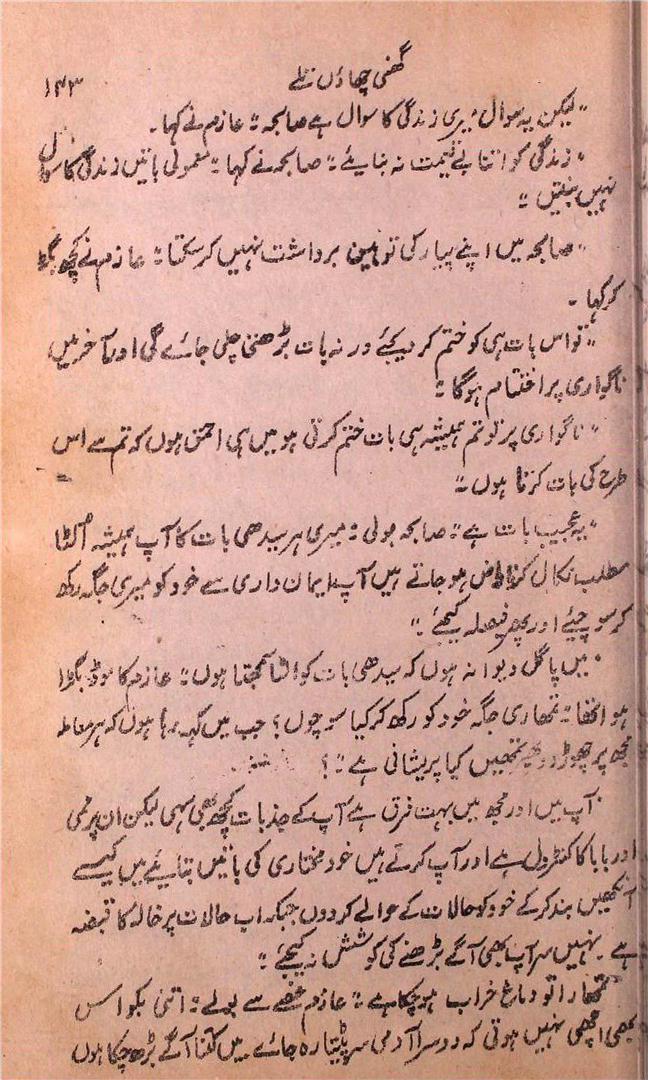 گھنی چھاؤں تلے
۱۴۳
"لیکن یہ سوال میری زندگی کا سوال ہے صابحہ" عازم نے کہا۔
"زندگی کو اتنا بے قیمت نہ بنایئے" صابحہ نے کہا "معمولی باتیں زندگی کا سوال
نہیں بنتیں"
"صابحہ میں اپنے پیار کی توہین برداشت نہیں کر سکتا" عازم نے کچھ بگڑ
کر کہا۔
"تو اس بات ہی کو ختم کر دیجئے ورنہ بات بڑھتی چلی جائے گی اور آخر میں
ناگواری پر اختتام ہوگا"
"ناگواری پر تو تم ہمیشہ ہی بات ختم کرتی ہو میں ہی احمق ہوں کہ تم سے اس
طرح کی بات کرتا ہوں"
"یہ عجیب بات ہے" صابحہ بولی "میری ہر سیدھی بات کا آپ ہمیشہ الٹا
مطلب نکال کر ناراض ہو جاتے ہیں آپ ایمان داری سے خود کو میری جگہ رکھ
کر سوچیئے اور پھر فیصلہ کیجئے"
"میں پاگل دیوانہ ہوں کہ سیدھی بات کو الٹا سمجھتا ہوں" عازم کا موڈ بگڑا
ہوا تھا "تمھاری جگہ خود کو رکھ کر کیا سوچوں؟ جب میں کہہ رہا ہوں کہ ہر معاملہ
مجھ پر چھوڑ دو پھر تمھیں کیا پریشانی ہے"؟
"آپ میں اور مجھ میں بہت فرق ہے آپ کے جذبات کچھ بھی سہی لیکن ان پر ممی
اور بابا کا کنٹرول ہے اور آپ کرتے ہیں خود مختاری کی باتیں بتایئے میں کیسے
آنکھیں بند کر کے خود کو حالات کے حوالے کر دوں جبکہ اب حالات پر خالہ کا قبضہ
ہے۔ نہیں سر آپ بھی آگے بڑھنے کی کوشش نہ کیجئے"
"تمھارا تو دماغ خراب ہو چکا ہے" عازم غصے سے بولے "اتنی بکواس
بھی اچھی نہیں ہوتی کہ دوسرا آدمی سر پیٹتا رہ جائے۔ میں کتنا آگے بڑھ چکا ہوں